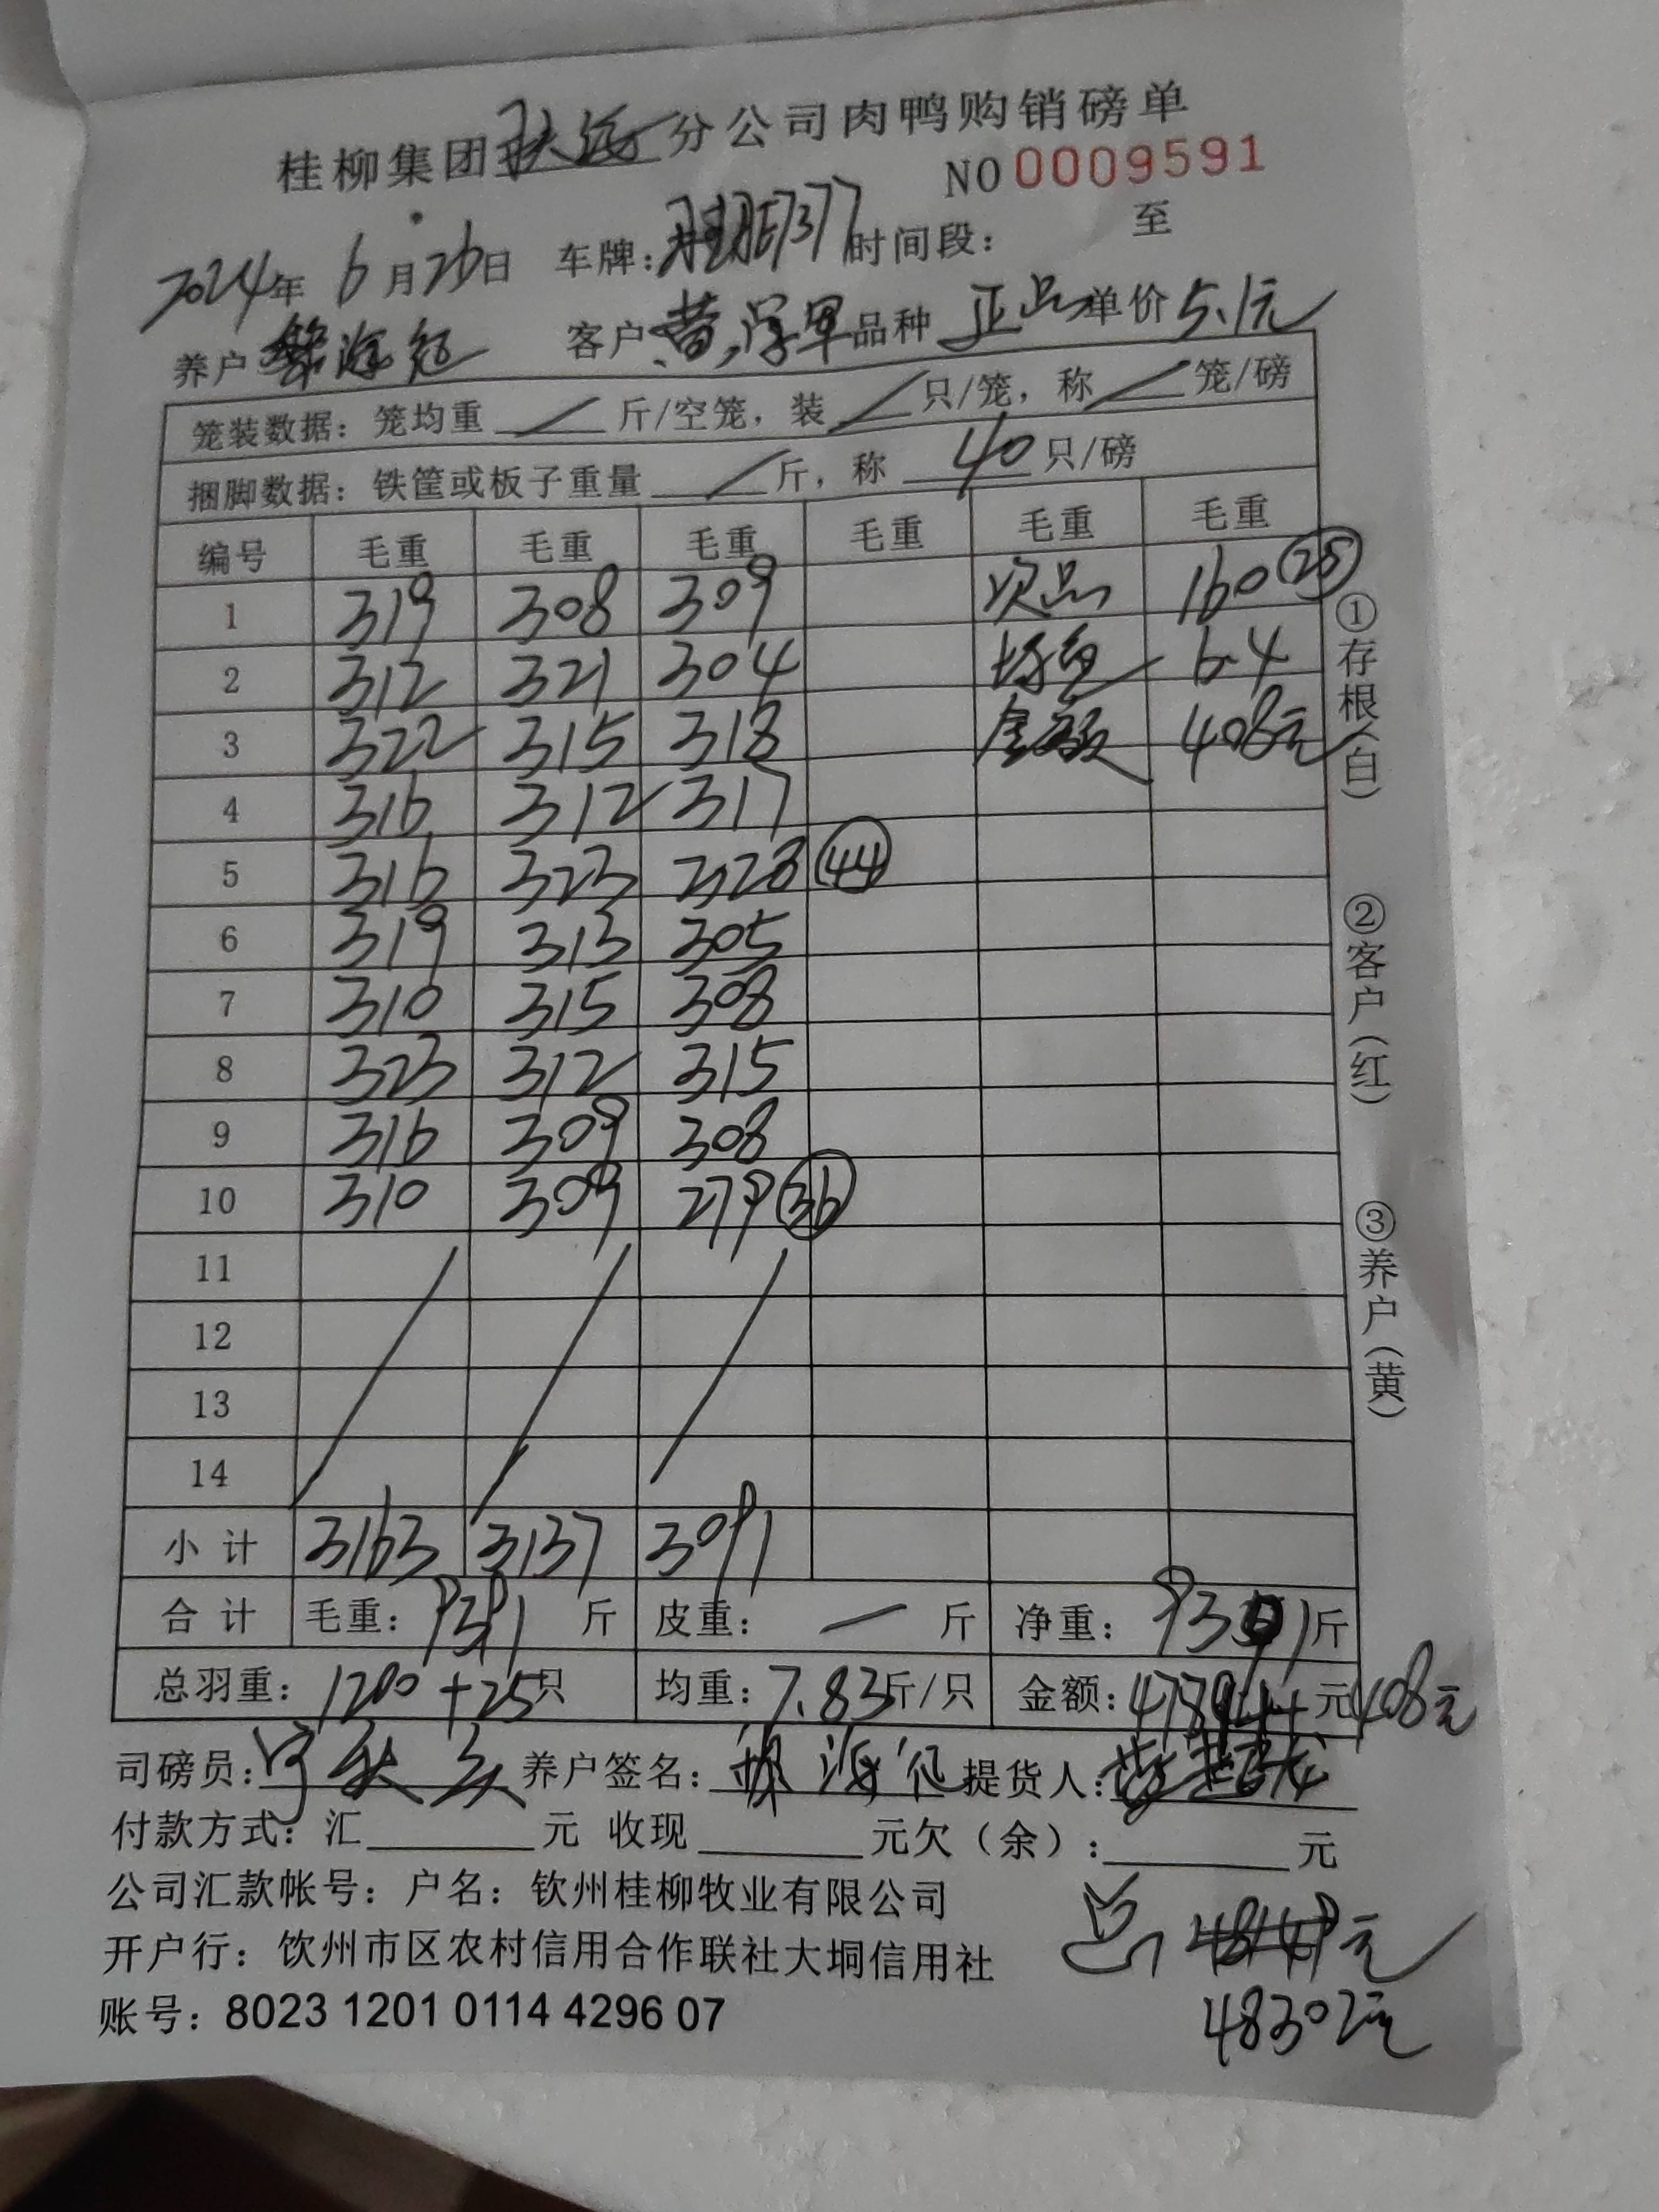 桂柳集团扶绥分公司肉鸭购销磅单
NO 0009591
2024年 6月26日 车牌: 377 时间段: 至
养户 客户 黄 品种 正品 单价 5.1元
笼装数据: 笼均重 / 斤/空笼, 装 / 只/笼, 称 / 笼/磅
捆脚数据: 铁筐或板子重量 / 斤, 称 40 只/磅
编号 毛重 毛重 毛重 毛重 毛重 毛重
1 319 308 309 次品 160 (25)
2 312 321 304 6.4
3 322 315 318 金额 408元
4 316 312 317
5 316 323 328 (44)
6 319 313 305
7 310 315 308
8 323 312 315
9 316 309 308
10 310 309 279 (36)
11
12
13
14
小计 3163 3137 3091
合计 毛重: 9391 斤 皮重: — 斤 净重: 9391斤
总羽重: 1200+25只 均重: 7.83斤/只 金额: 47894.1元 408元
司磅员: 养户签名: 提货人:
付款方式: 汇 元 收现 元欠(余): 元
公司汇款帐号: 户名: 钦州桂柳牧业有限公司
开户行: 钦州市区农村信用合作联社大垌信用社
总 元
账号: 8023 1201 0114 4296 07
48302元
①存根(白) ②客户(红) ③养户(黄)